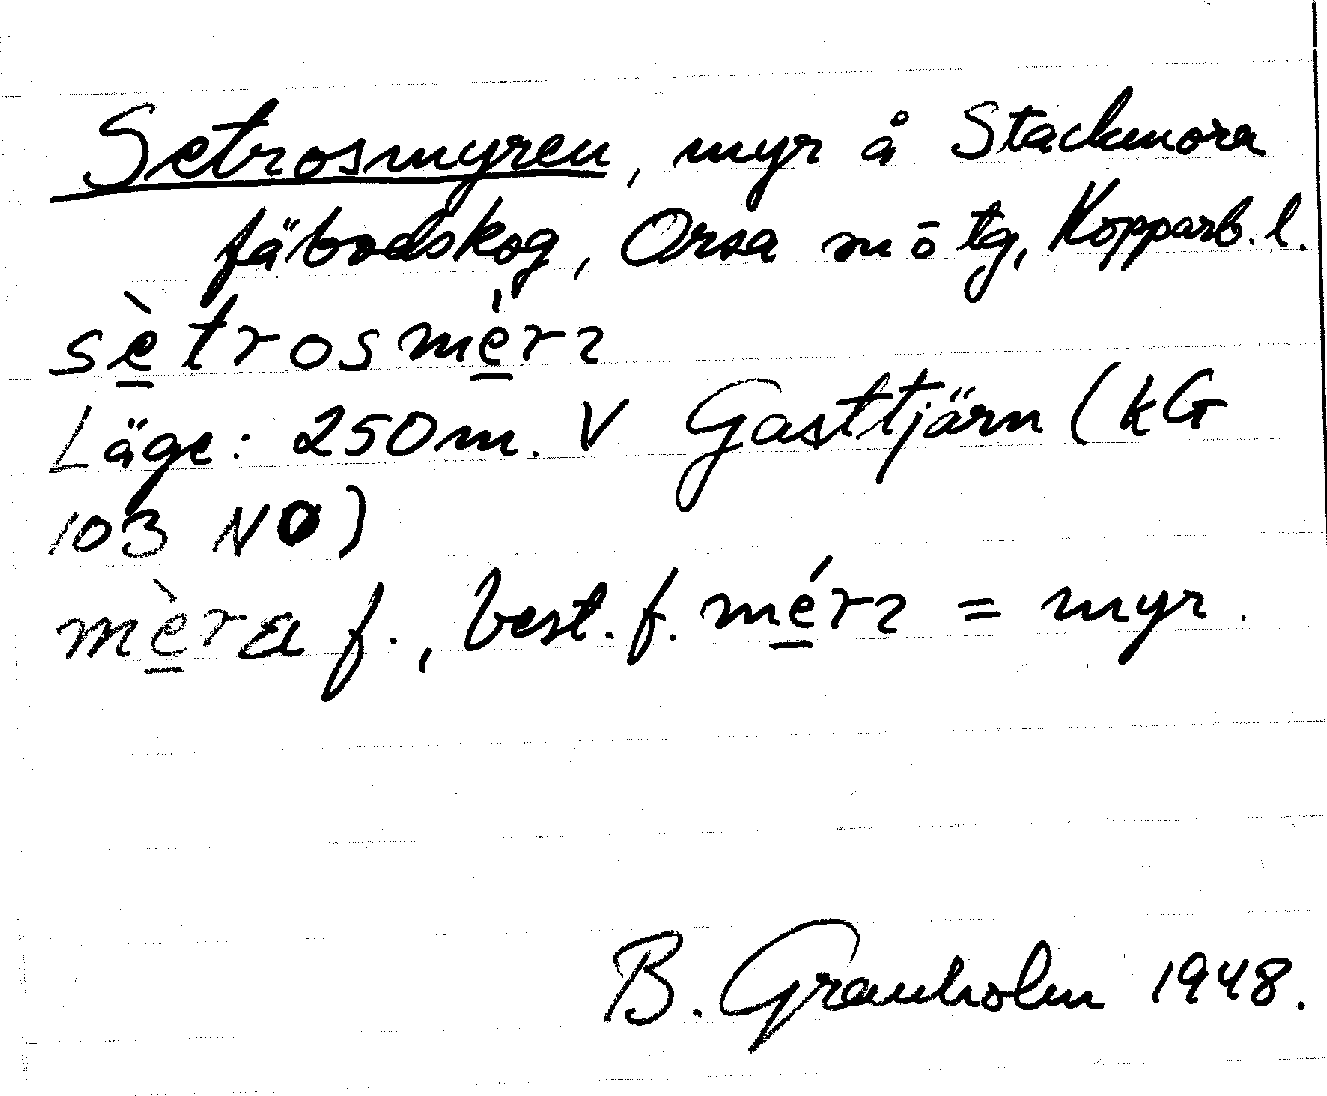 Setrosmyren, myr å Stackmora
fäbodskog, Orsa sn ö tg, Kopparb. l.
sè̱trosmé̱rɿ
Läge: 250 m. V Gasttjärn (kG
103 NO)
mè̱ra f., best. f. mé̱rɿ = myr.
B. Granholm 1948.